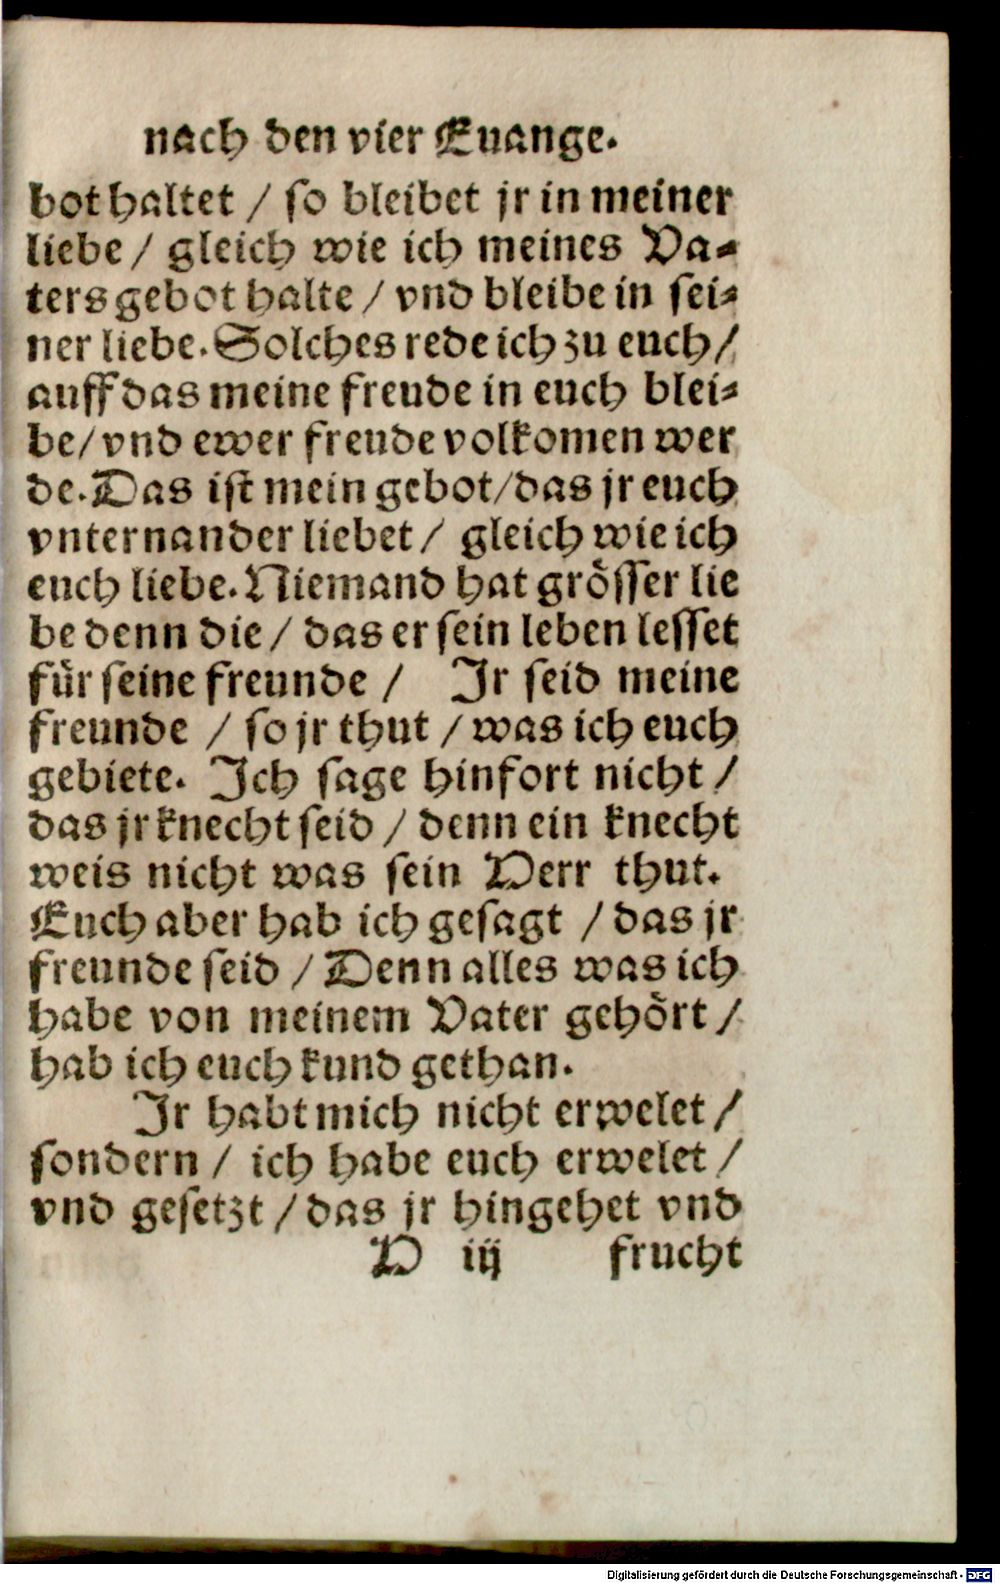 nach den vier Euange.
bot haltet / so bleibet jr in meiner
liebe / gleich wie ich meines Va⸗
ters gebot halte / vnd bleibe in sei⸗
ner liebe. Solches rede ich zu euch /
auff das meine freude in euch blei⸗
be / vnd ewer freude volkomen wer
de. Das ist mein gebot / das jr euch
vnternander liebet / gleich wie ich
euch liebe. Niemand hat grösser lie
be denn die / das er sein leben lesset
für seine freunde / Jr seid meine
freunde / so jr thut / was ich euch
gebiete. Jch sage hinfort nicht /
das jr knecht seid / denn ein knecht
weis nicht was sein Herr thut.
Euch aber hab ich gesagt / das jr
freunde seid / Denn alles was ich
habe von meinem Vater gehört /
hab ich euch kund gethan.
Jr habt mich nicht erwelet /
sondern / ich habe euch erwelet /
vnd gesetzt / das jr hingehet vnd
H iij frucht
Digitalisierung gefördert durch die Deutsche Forschungsgemeinschaft - DFG